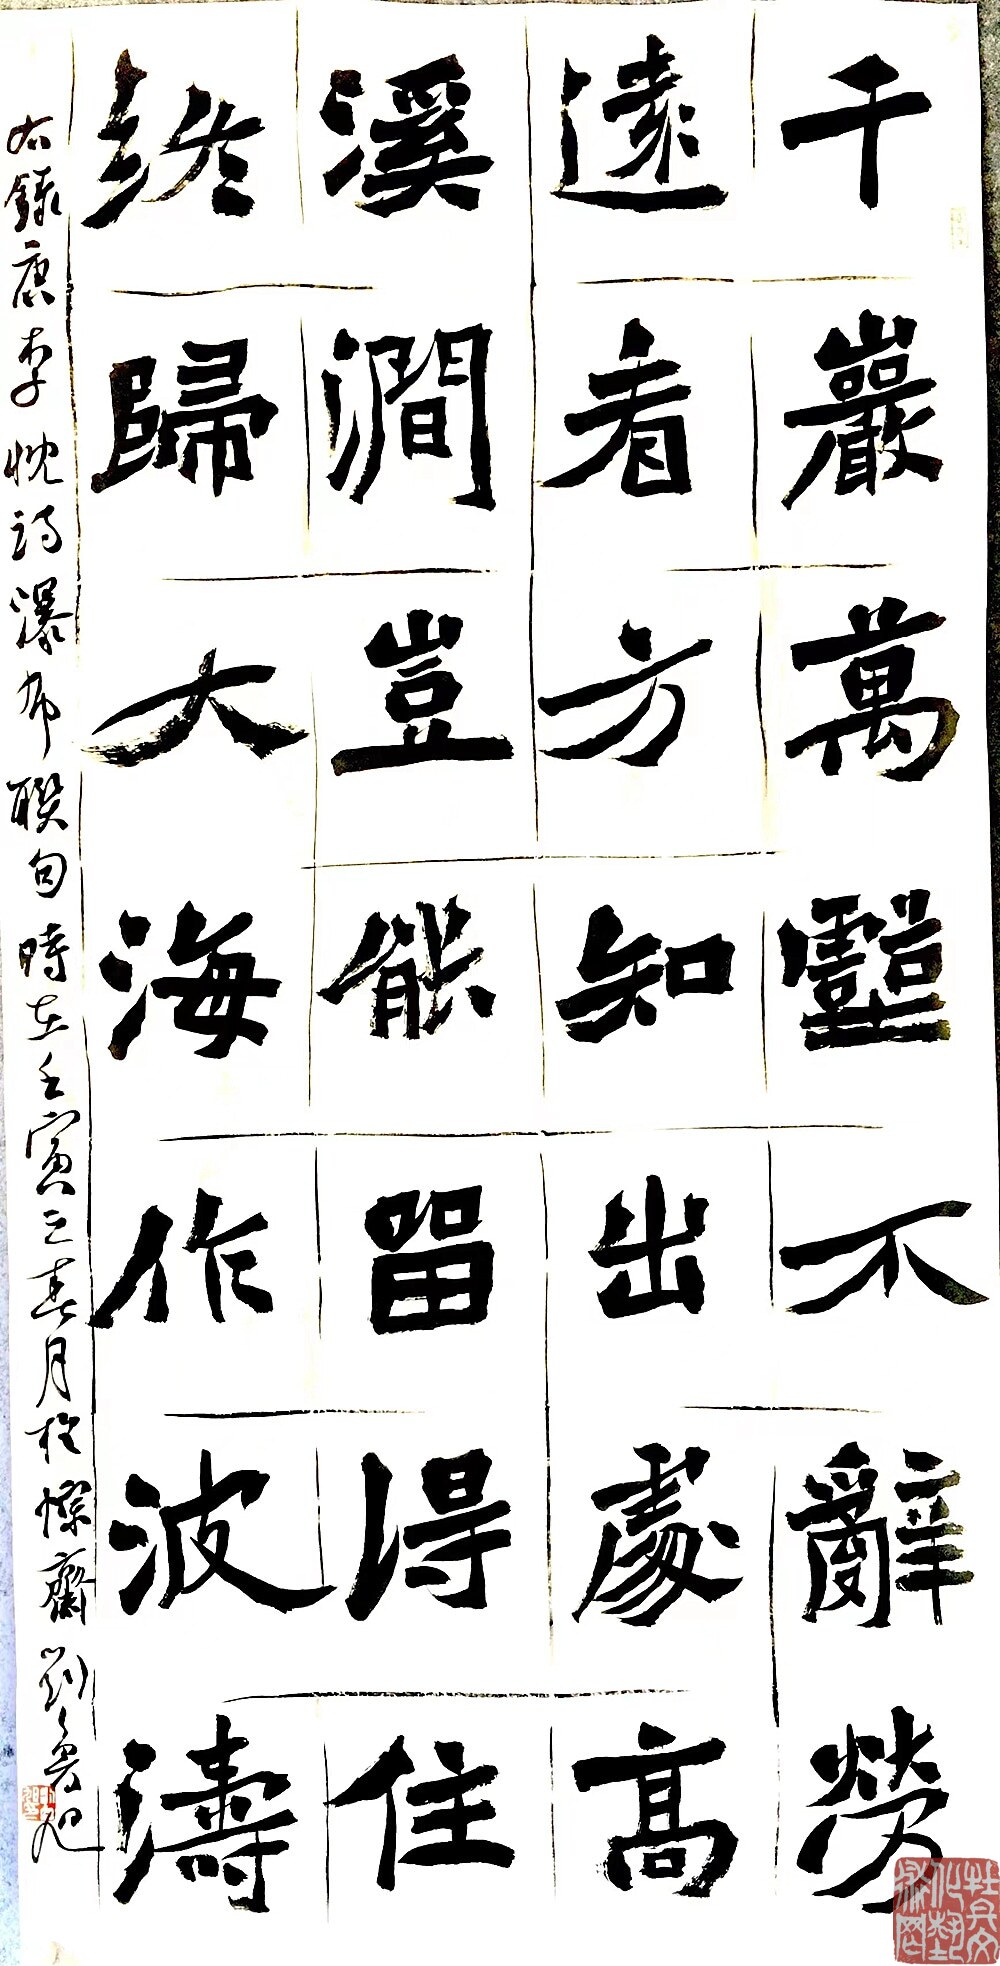 千巖萬壑不辭勞
遠看方知出處高
溪澗豈能留得住
終歸大海作波濤
右錄唐李忱詩瀑布聯句時在壬寅之春月於齋劉旭